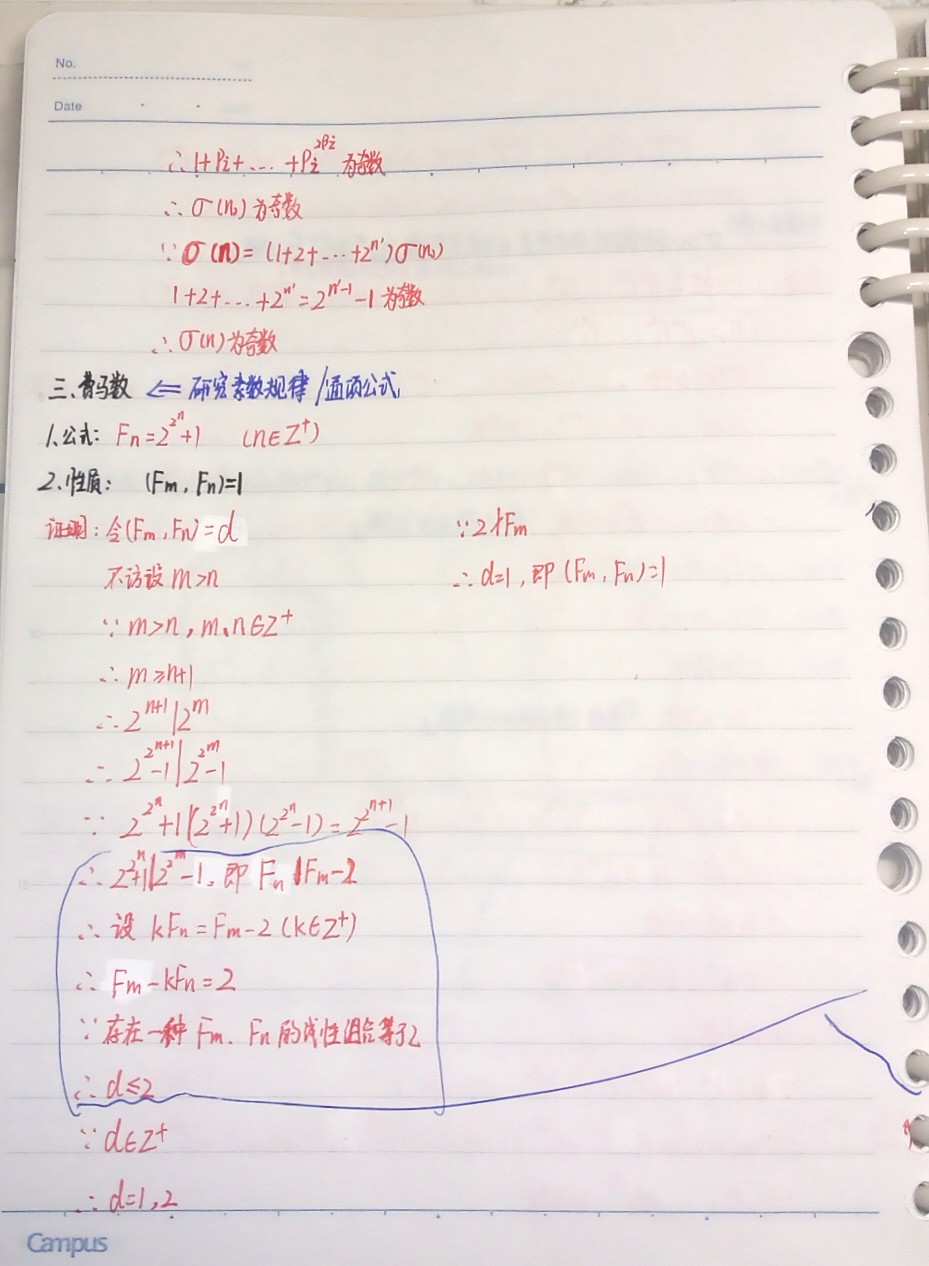 No.
Date
∴ 1+Pi+…+Pi^{2βi} 为奇数
∴ σ(n₀) 为奇数
∵ σ(n) = (1+2+…+2^{n'})σ(n₀)
1+2+…+2^{n'} = 2^{n'-1}-1 为奇数
∴ σ(n) 为奇数
三、费马数 ⇐ 研究素数规律/通项公式
1.公式: Fn=2^{2^n}+1 (n∈Z⁺)
2.性质: (Fm, Fn)=1
证明: 令(Fm, Fn)=d
不访设 m>n
∵ m>n, m、n∈Z⁺
∴ m≥n+1
∴ 2^{n+1}|2^m
∴ 2^{2^{n+1}}-1|2^{2^m}-1
∵ 2^{2^n}+1|(2^{2^n}+1)(2^{2^n}-1)=2^{2^{n+1}}-1
∴ 2^{2^n}+1|2^{2^m}-1, 即 Fn|Fm-2
∴ 设 kFn=Fm-2 (k∈Z⁺)
∴ Fm-kFn=2
∵ 存在一种 Fm、Fn 的线性组合等于2
∴ d≤2
∵ d∈Z⁺
∴ d=1,2
∵ 2∤Fm
∴ d=1, 即 (Fm, Fn)=1
Campus